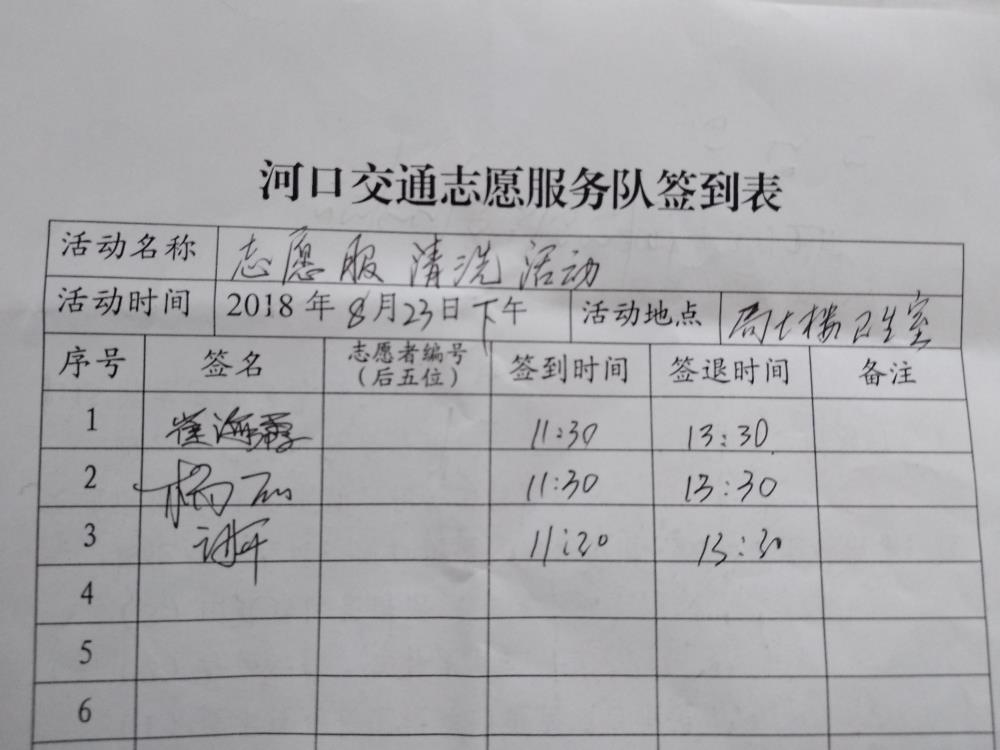 河口交通志愿服务队签到表
活动名称 志愿服清洗活动
活动时间 2018年8月23日下午 活动地点 局七楼卫生室
序号 签名 志愿者编号（后五位） 签到时间 签退时间 备注
1 崔海霞 11:30 13:30
2 杨 11:30 13:30
3 11:30 13:30
4
5
6